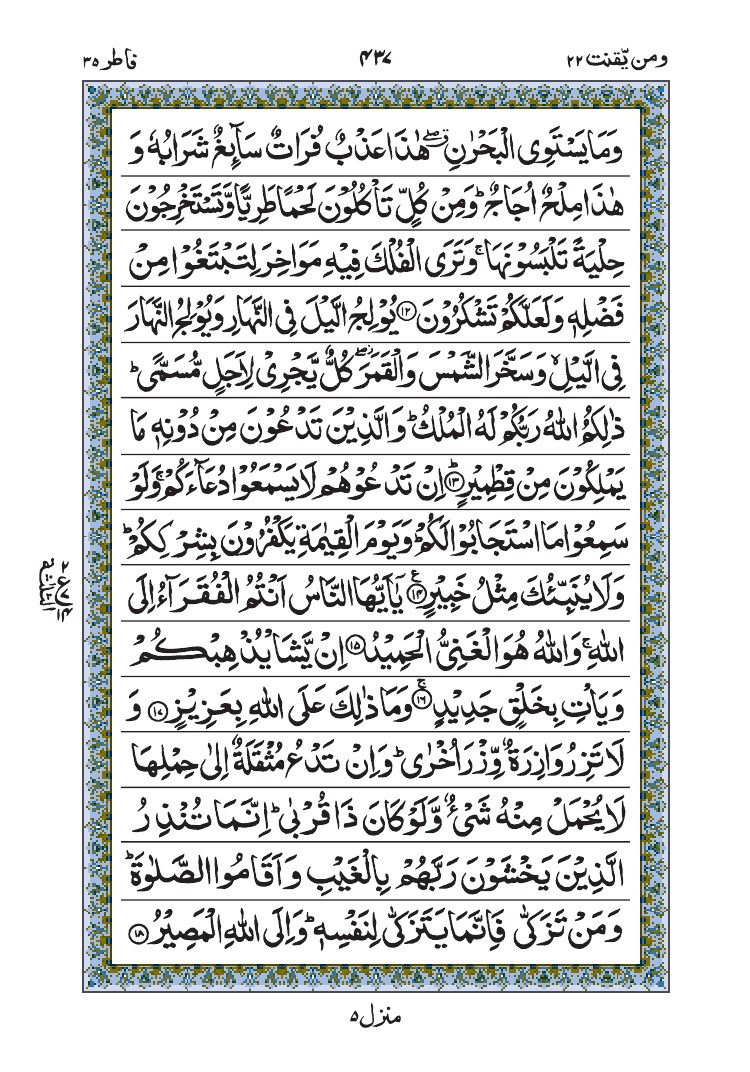 ومن یّقنت ۲۲
۴۳۷
فاطر ۳۵
وَمَا يَسْتَوِى الْبَحْرٰنِ ۖ هٰذَا عَذْبٌ فُرَاتٌ سَآئِغٌ شَرَابُهٗ وَ
هٰذَا مِلْحٌ اُجَاجٌ ؕ وَمِنْ كُلٍّ تَاْكُلُوْنَ لَحْمًا طَرِيًّا وَّتَسْتَخْرِجُوْنَ
حِلْيَةً تَلْبَسُوْنَهَا ۚ وَتَرَى الْفُلْكَ فِيْهِ مَوَاخِرَ لِتَبْتَغُوْا مِنْ
فَضْلِهٖ وَلَعَلَّكُمْ تَشْكُرُوْنَ ﴿۱۲﴾ يُوْلِجُ الَّيْلَ فِى النَّهَارِ وَيُوْلِجُ النَّهَارَ
فِى الَّيْلِ ۙ وَسَخَّرَ الشَّمْسَ وَالْقَمَرَ ۖ كُلٌّ يَّجْرِىْ لِاَجَلٍ مُّسَمًّى ؕ
ذٰلِكُمُ اللّٰهُ رَبُّكُمْ لَهُ الْمُلْكُ ؕ وَالَّذِيْنَ تَدْعُوْنَ مِنْ دُوْنِهٖ مَا
يَمْلِكُوْنَ مِنْ قِطْمِيْرٍ ؕ ﴿۱۳﴾ اِنْ تَدْعُوْهُمْ لَا يَسْمَعُوْا دُعَآءَكُمْ ۚ وَلَوْ
سَمِعُوْا مَا اسْتَجَابُوْا لَكُمْ ؕ وَيَوْمَ الْقِيٰمَةِ يَكْفُرُوْنَ بِشِرْكِكُمْ ؕ
وَلَا يُنَبِّئُكَ مِثْلُ خَبِيْرٍ ﴿۱۴﴾ ع يٰۤاَيُّهَا النَّاسُ اَنْتُمُ الْفُقَرَآءُ اِلَى
اللّٰهِ ۚ وَاللّٰهُ هُوَ الْغَنِىُّ الْحَمِيْدُ ﴿۱۵﴾ اِنْ يَّشَاْ يُذْهِبْكُمْ
وَيَاْتِ بِخَلْقٍ جَدِيْدٍ ۚ ﴿۱۶﴾ وَمَا ذٰلِكَ عَلَى اللّٰهِ بِعَزِيْزٍ ﴿۱۷﴾ وَ
لَا تَزِرُ وَازِرَةٌ وِّزْرَ اُخْرٰى ؕ وَاِنْ تَدْعُ مُثْقَلَةٌ اِلٰى حِمْلِهَا
لَا يُحْمَلْ مِنْهُ شَىْءٌ وَّلَوْ كَانَ ذَا قُرْبٰى ؕ اِنَّمَا تُنْذِرُ
الَّذِيْنَ يَخْشَوْنَ رَبَّهُمْ بِالْغَيْبِ وَاَقَامُوا الصَّلٰوةَ ؕ
وَمَنْ تَزَكّٰى فَاِنَّمَا يَتَزَكّٰى لِنَفْسِهٖ ؕ وَاِلَى اللّٰهِ الْمَصِيْرُ ﴿۱۸﴾
منزل ۵